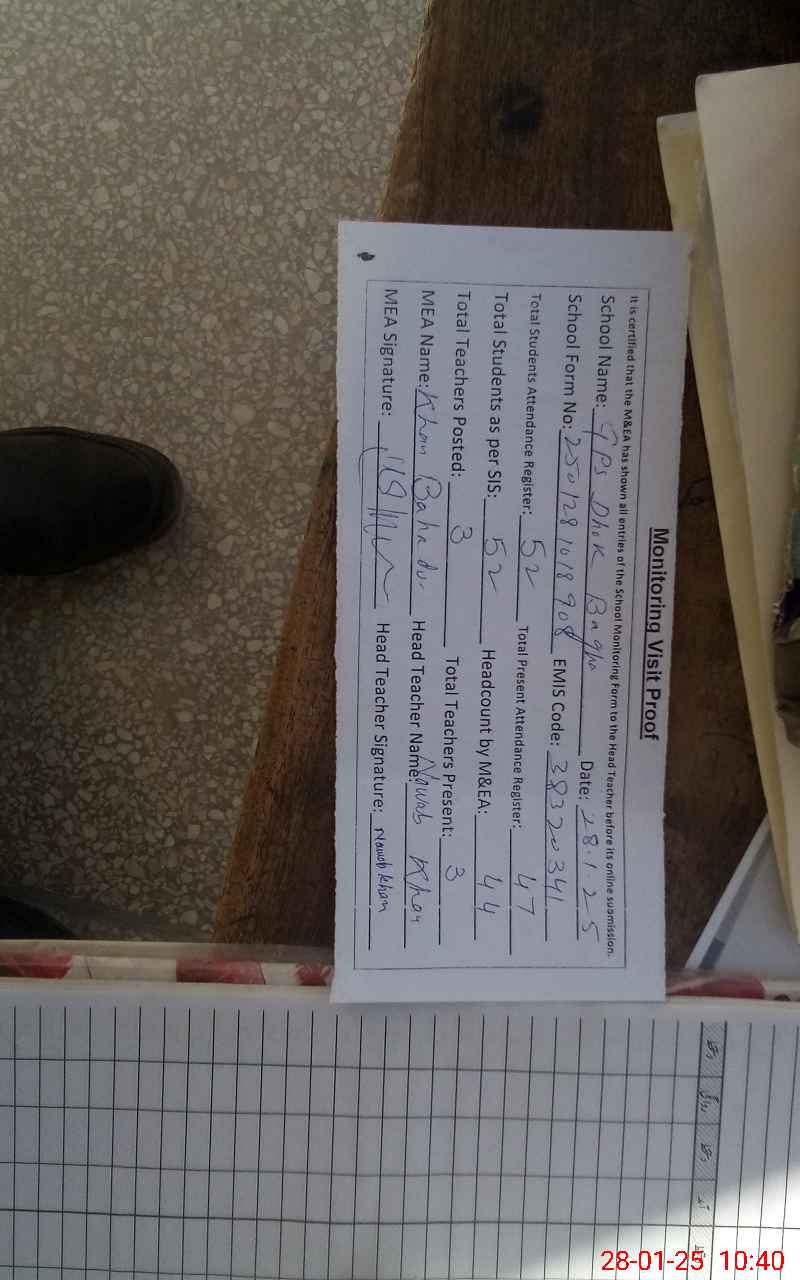 Monitoring Visit Proof
It is certified that the M&EA has shown all entries of the School Monitoring Form to the Head Teacher before its online submission.
School Name: GPS Dhok Bagha Date: 28.1.25
School Form No: 250128 1018 908 EMIS Code: 38320341
Total Students Attendance Register: 52 Total Present Attendance Register: 47
Total Students as per SIS: 52 Headcount by M&EA: 44
Total Teachers Posted: 3 Total Teachers Present: 3
MEA Name: Khan Bahadur Head Teacher Name: Nawab Khan
MEA Signature: Head Teacher Signature: Nawab Khan
28-01-25 10:40